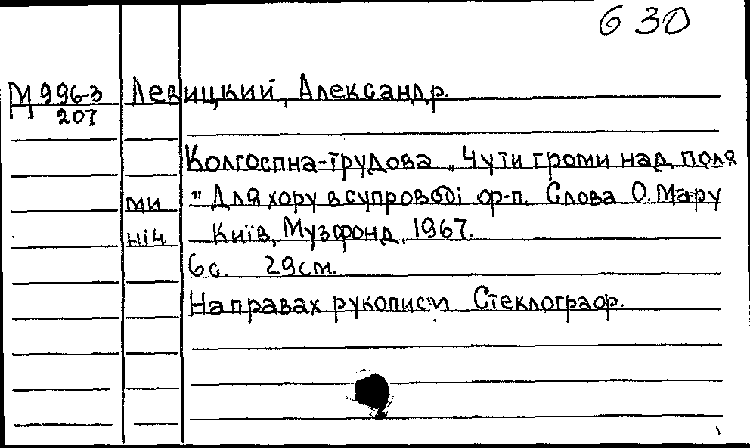 630
М 996-3 Левицкий, Александр.
207
Колгоспна-трудова „Чути громи над поля
ми " Для хору в супроводі ф-п. Слова О. Мару
ніч Київ, Музфонд, 1967.
6 с. 29 см.
На правах рукописи Стеклограф.